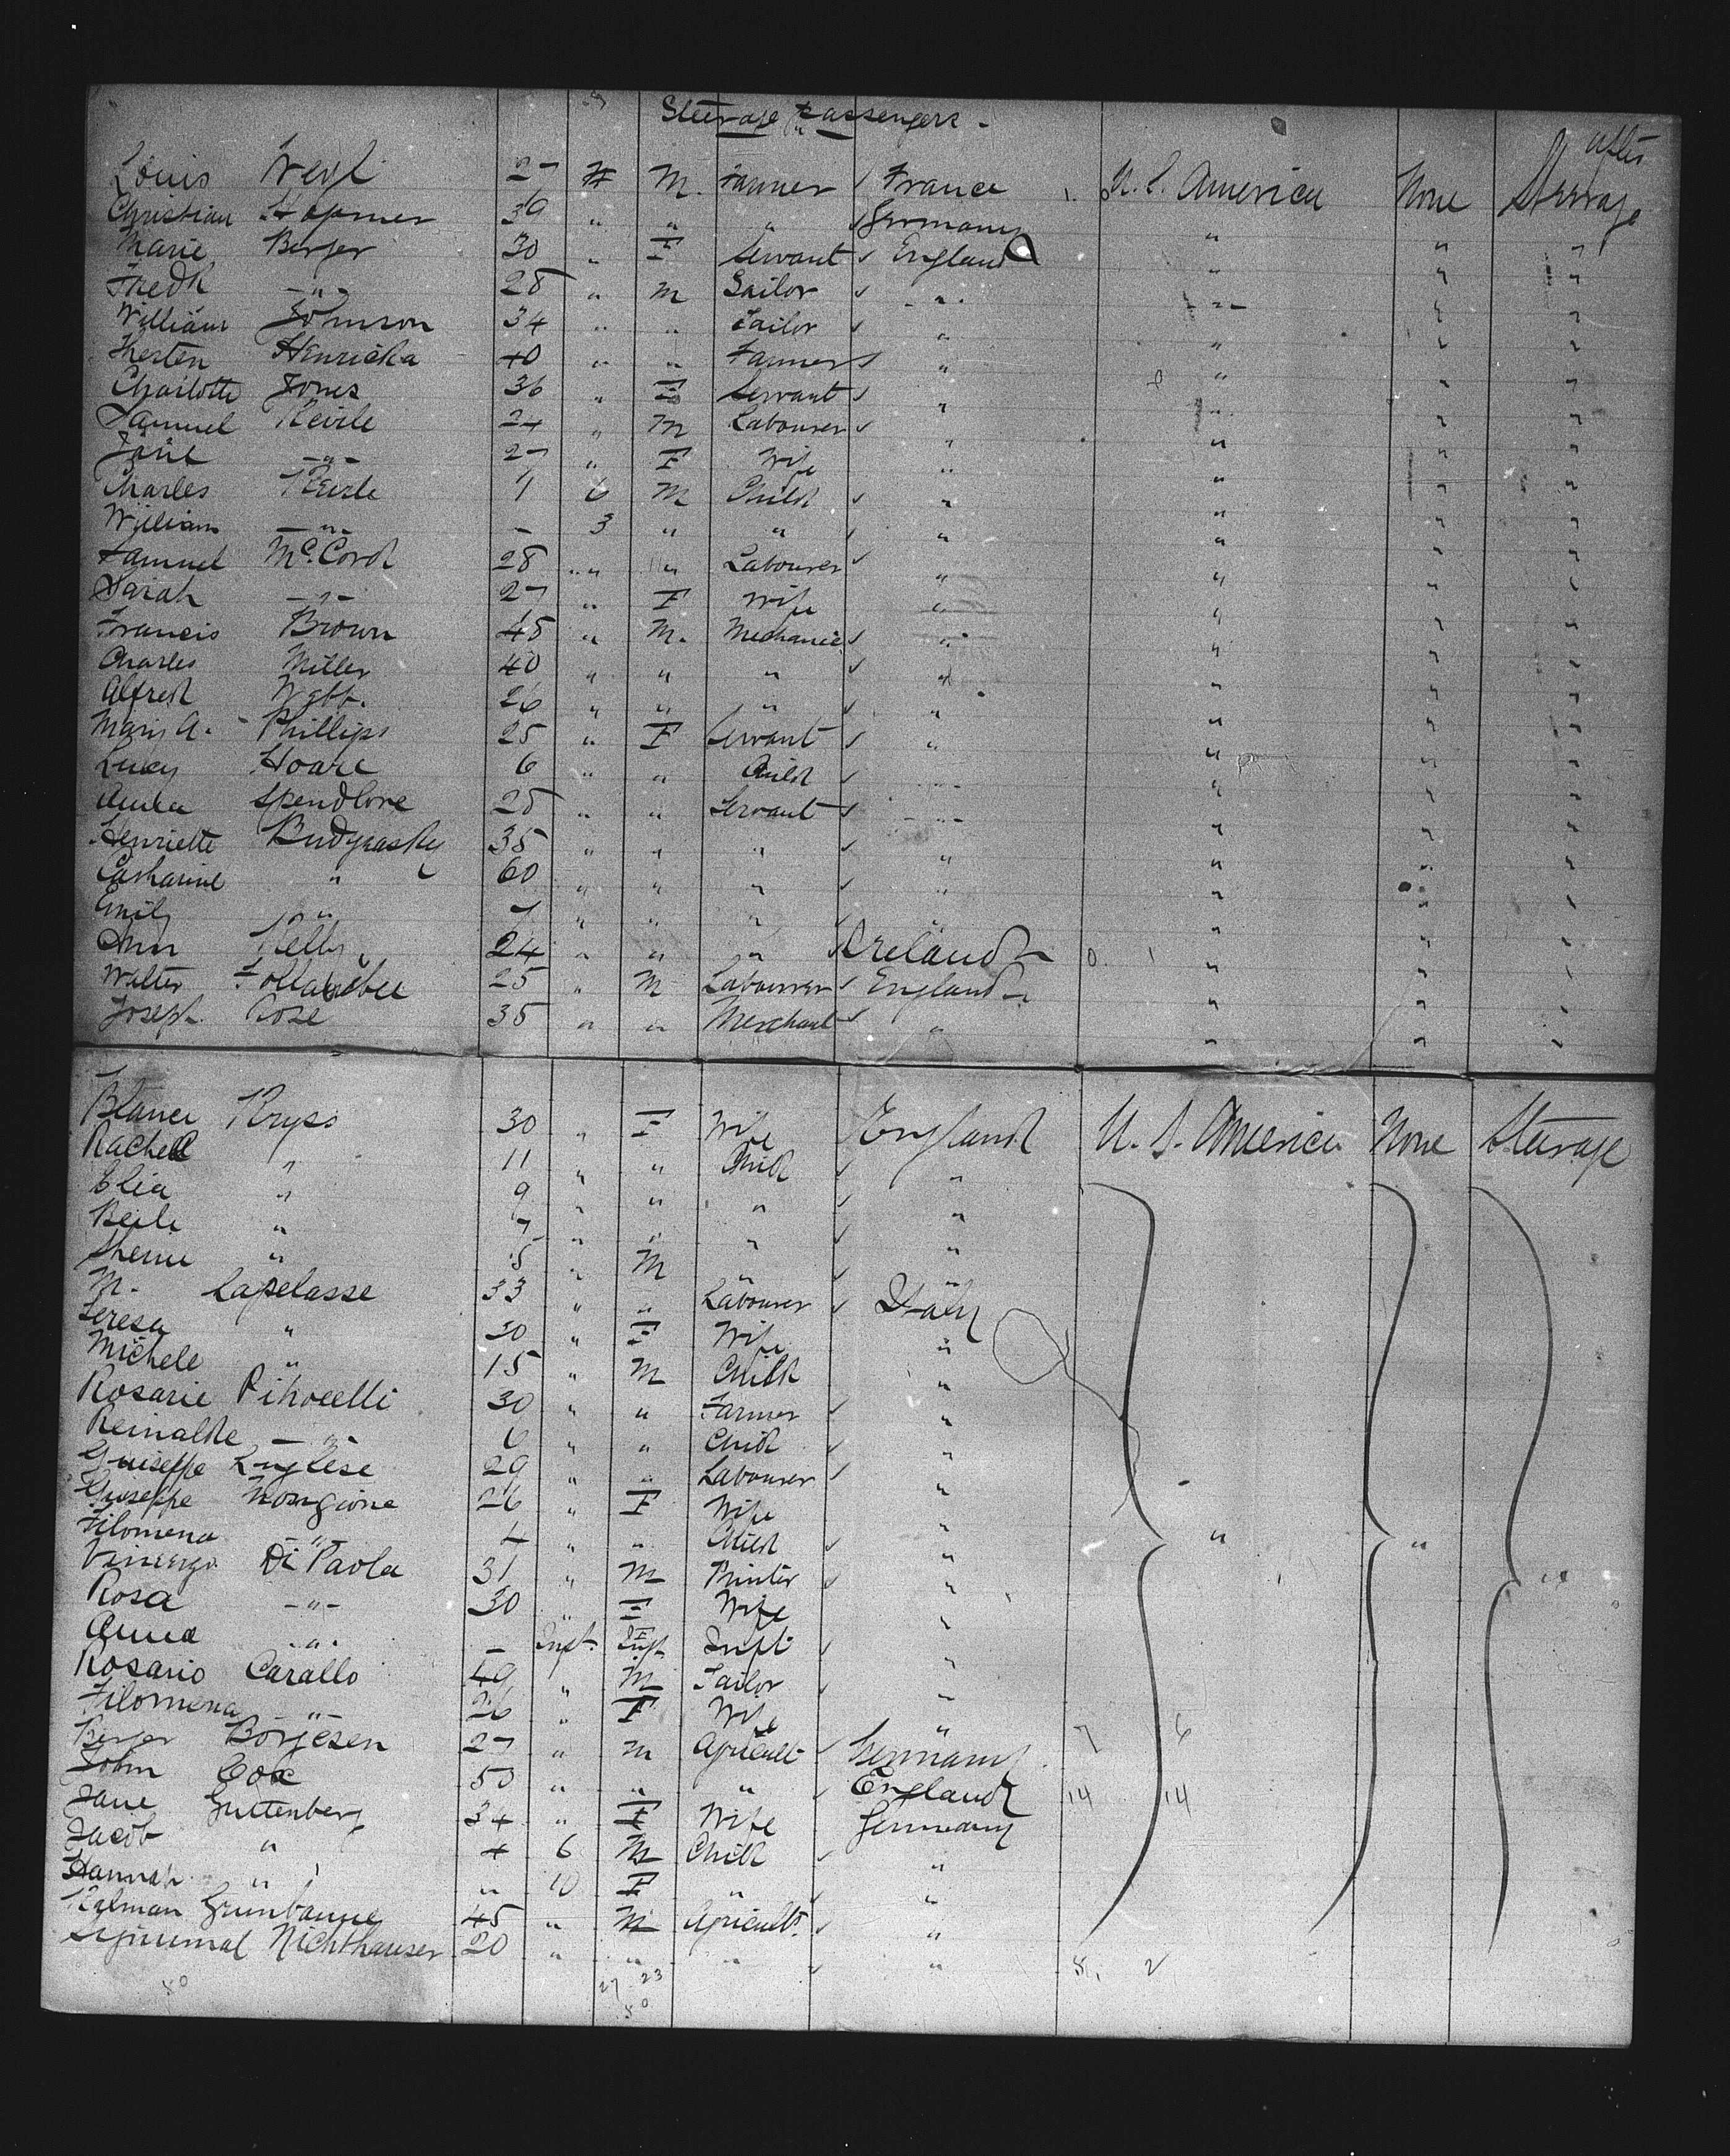 Steerage Passengers -
Louis Weyl 27 M. Farmer France U.S. America None After Steerage
Christian 39 " " " Germany " " "
Marie Berger 30 " F Servant England " " "
Fredk -"- 28 " M Sailor " " " "
William Johnson 34 " " Tailor " " " "
Henricka 40 " " Farmer " " " "
Charlotte Jones 36 " F Servant " " " "
Samuel 24 " M Labourer " " " "
Jane -"- 27 " F Wife " " " "
Charles 1 6 M Child " " " "
William -"- - 3 " " " " " "
Samuel McCord 28 " " Labourer " " " "
Sarah -"- 27 " F Wife " " " "
Francis Brown 45 " M. Mechanic " " " "
Charles Miller 40 " " " " " " "
Alfred Webb. 26 " " " " " " "
Mary A. Phillips 25 " F Servant " " " "
Lucy Hoare 6 " " Child " " " "
Spendlove 25 " " Servant " " " "
Henriette 35 " " " " " " "
Catharine " 60 " " " " " " "
Emily " 7 " " " " " " "
Ann Kelly 24 " " " Ireland " " "
Walter 25 " M Labourer England " " "
Joseph Rose 35 " " Merchant " " " "
Kryss 30 " F Wife England U.S. America None Steerage
Rachel " 11 " " Child "
Elia " 9 " " " "
Beile " 7 " " " "
" 5 " M " "
M. Capelasse 33 " " Labourer Italy
Teresa " 30 " F Wife "
Michele " 15 " M Child "
Rosarie 30 " " Farmer "
-"- 6 " " Child "
Giuseppe Luglese 29 " " Labourer "
Giuseppe 26 " F Wife "
Filomena -"- 4 " " Child " " " "
Vincenzo Di Paola 31 " M Printer "
Rosa -"- 30 " F Wife "
Anna -"- - Inft. F Inft "
Rosario Carallo 49 " M Tailor "
Filomena -"- 26 " F Wife "
Berger Borjesen 27 " M Agricult Germany 7 6
John Cox 50 " " " England 14 14
Jane Guttenberg 34 " F Wife Germany
Jacob " 4 6 M Child "
Hannah " " 10 F " "
Kalman Grunbaum 45 " M Agricult. "
Nichthauser 20 " " " " 8. 2
50 27 23
50